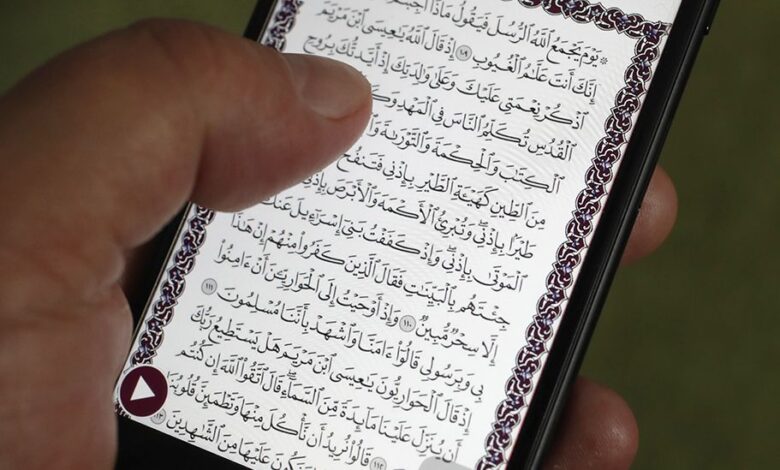 ۞ يَوْمَ يَجْمَعُ ٱللَّهُ ٱلرُّسُلَ فَيَقُولُ مَاذَآ
إِنَّكَ أَنتَ عَلَّٰمُ ٱلْغُيُوبِ ١٠٩ إِذْ قَالَ ٱللَّهُ يَٰعِيسَى ٱبْنَ مَرْيَمَ
ٱذْكُرْ نِعْمَتِى عَلَيْكَ وَعَلَىٰ وَٰلِدَتِكَ إِذْ أَيَّدتُّكَ بِرُوحِ
ٱلْقُدُسِ تُكَلِّمُ ٱلنَّاسَ فِى ٱلْمَهْدِ
ٱلْكِتَٰبَ وَٱلْحِكْمَةَ وَٱلتَّوْرَىٰةَ
مِنَ ٱلطِّينِ كَهَيْـَٔةِ ٱلطَّيْرِ بِإِذْنِى فَتَنفُخُ
طَيْرًۢا بِإِذْنِى ۖ وَتُبْرِئُ ٱلْأَكْمَهَ وَٱلْأَبْرَصَ بِإِذْنِى
ٱلْمَوْتَىٰ بِإِذْنِى ۖ وَإِذْ كَفَفْتُ بَنِىٓ إِسْرَٰٓءِيلَ عَنكَ
جِئْتَهُم بِٱلْبَيِّنَٰتِ فَقَالَ ٱلَّذِينَ كَفَرُوا۟ مِنْهُمْ إِنْ هَٰذَآ
إِلَّا سِحْرٌ مُّبِينٌ ١١٠ وَإِذْ أَوْحَيْتُ إِلَى ٱلْحَوَارِيِّۦنَ أَنْ ءَامِنُوا۟
بِى وَبِرَسُولِى قَالُوٓا۟ ءَامَنَّا وَٱشْهَدْ بِأَنَّنَا مُسْلِمُونَ ١١١
إِذْ قَالَ ٱلْحَوَارِيُّونَ يَٰعِيسَى ٱبْنَ مَرْيَمَ هَلْ يَسْتَطِيعُ رَبُّكَ
أَن يُنَزِّلَ عَلَيْنَا مَآئِدَةً مِّنَ ٱلسَّمَآءِ ۖ قَالَ ٱتَّقُوا۟ ٱللَّهَ إِن كُنتُم
١١٢ قَالُوا۟ نُرِيدُ أَن نَّأْكُلَ مِنْهَا وَتَطْمَئِنَّ قُلُوبُنَا
عَلَيْهَا مِنَ ٱلشَّٰهِدِينَ ١١٣